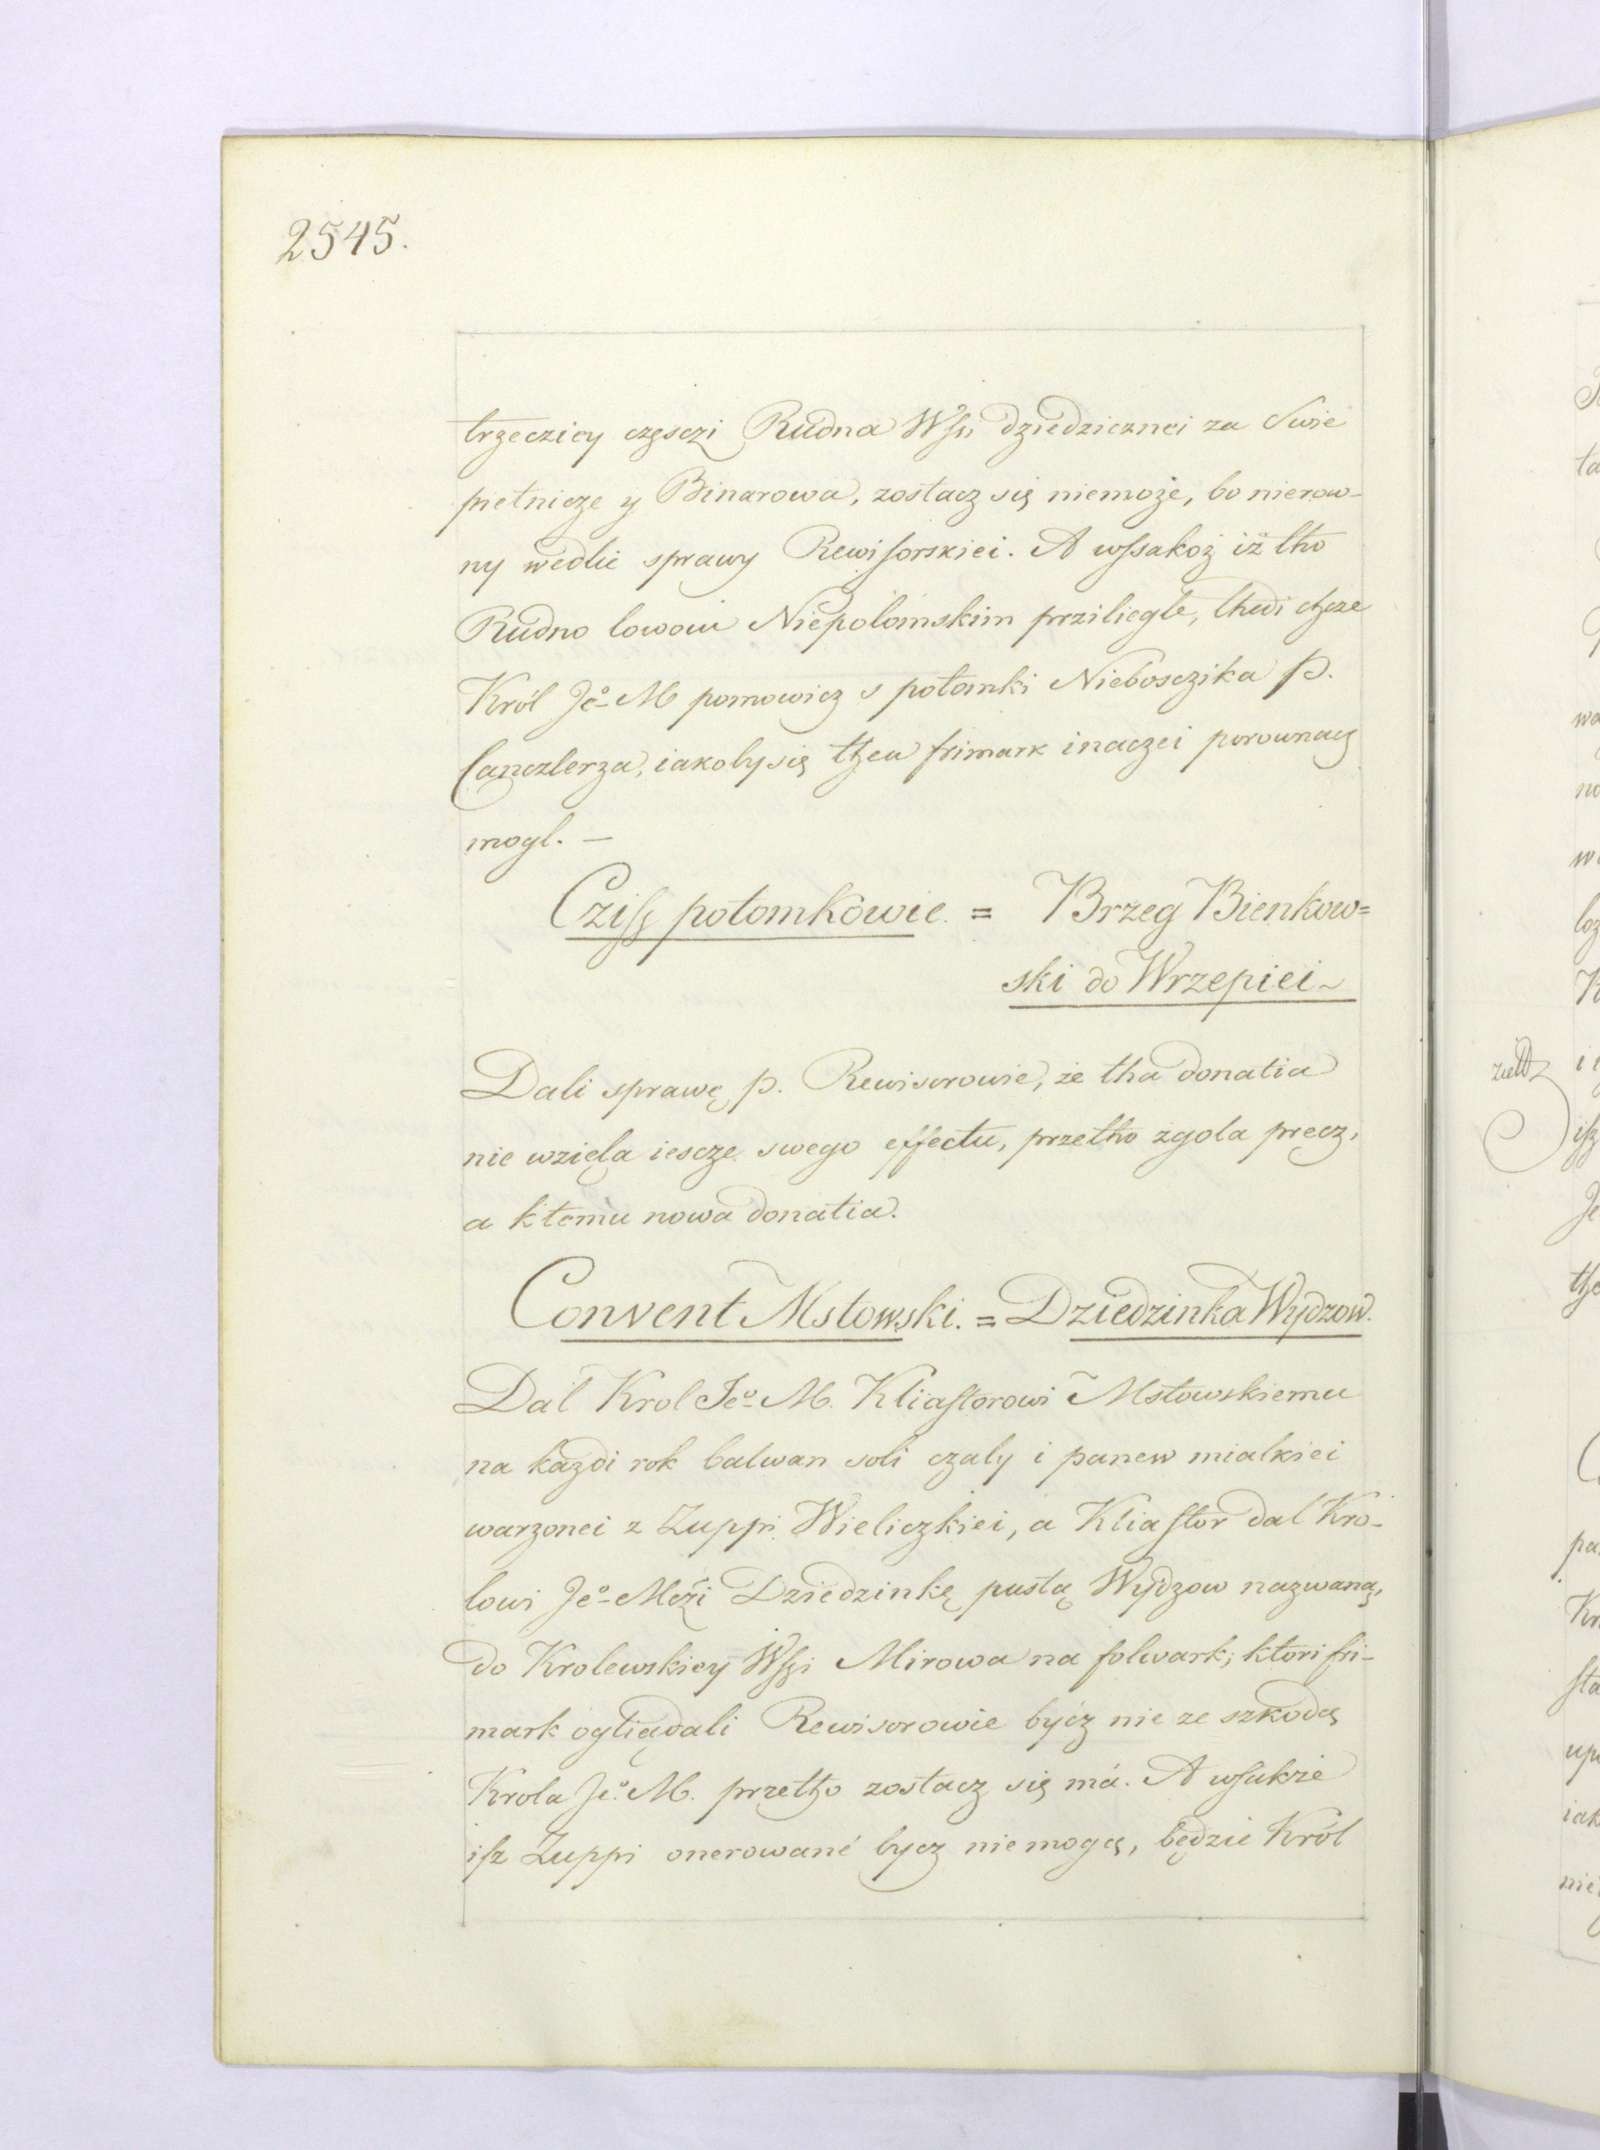 2545.
trzecziey częsczi Rudna Wsi dziedzicznei za Swie
pietnicze y Binarowa, zostacz się niemoże, bo nierow-
ny wedlie sprawy Rewisorskiei. A wssakoż iż tho
Rudno lowom Niepolomskim prziliegle, thedi chcze
Król Jeo M pomowicz s potomki Nieboczczika P.
Canczlerza, iakoby się then frimark inaczei porownacz
mogl. —
Cziss potomkowie = Brzeg Bienkow=
ski do Wrzepiei ~
Dali sprawę p. Rewisorowie, że tha donatia
nie wzięla iescze swego effectu, przetho zgola precz,
a ktemu nowa donatia.
Convent Mstowski. = Dziedzinka Wydzow.
Dal Krol Jeo M. Kliasstorowi Mstowskiemu
na każdi rok balwan soli czaly i panew mialkiei
warzonei z Zuppi Wieliczkiei, a Kliastor dal Kro-
lowi Jeo Mczi Dziedzinkę pustą Wydzow nazwaną,
do Krolewskiey Wsi Mirowa na folwark; ktori fri-
mark oglięدali Rewisorowie bycz nie ze szkodą
Krola Jeo M. przetho zostacz się má. A wsakże
isz Zuppi onerowané bycz nie mogą, będzie Król